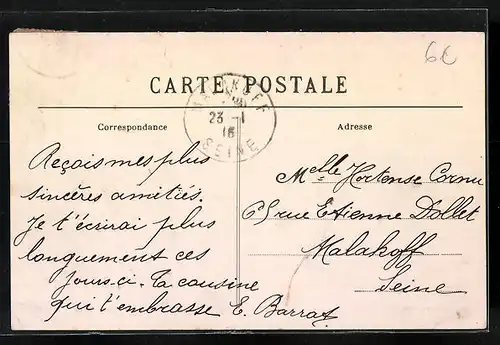 6c
CARTE POSTALE
MALAKOFF
23 -1
16
SEINE
Correspondance
Reçois mes plus
sincères amitiés.
Je t'écrirai plus
longuement ces
jours-ci. Ta cousine
qui t'embrasse E. Barrat
Adresse
Melle Hortense Cornu
65 rue Etienne Dollet
Malakoff
Seine